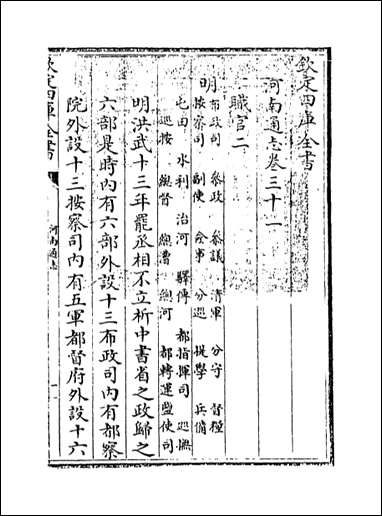 欽定四庫全書
河南通志卷三十一
職官二
明布政司 參政 參議 清軍 分守 督糧
按察司 副使 僉事 分巡 提學 兵備
屯田 水利 治河 驛傳 都指揮司 巡撫
巡按 總督 總漕 總河 都轉運鹽使司
明洪武十三年罷丞相不立析中書省之政歸之
六部是時內有六部外設十三布政司內有都察
院外設十三按察司內有五軍都督府外設十六
欽定四庫全書
河南通志
一